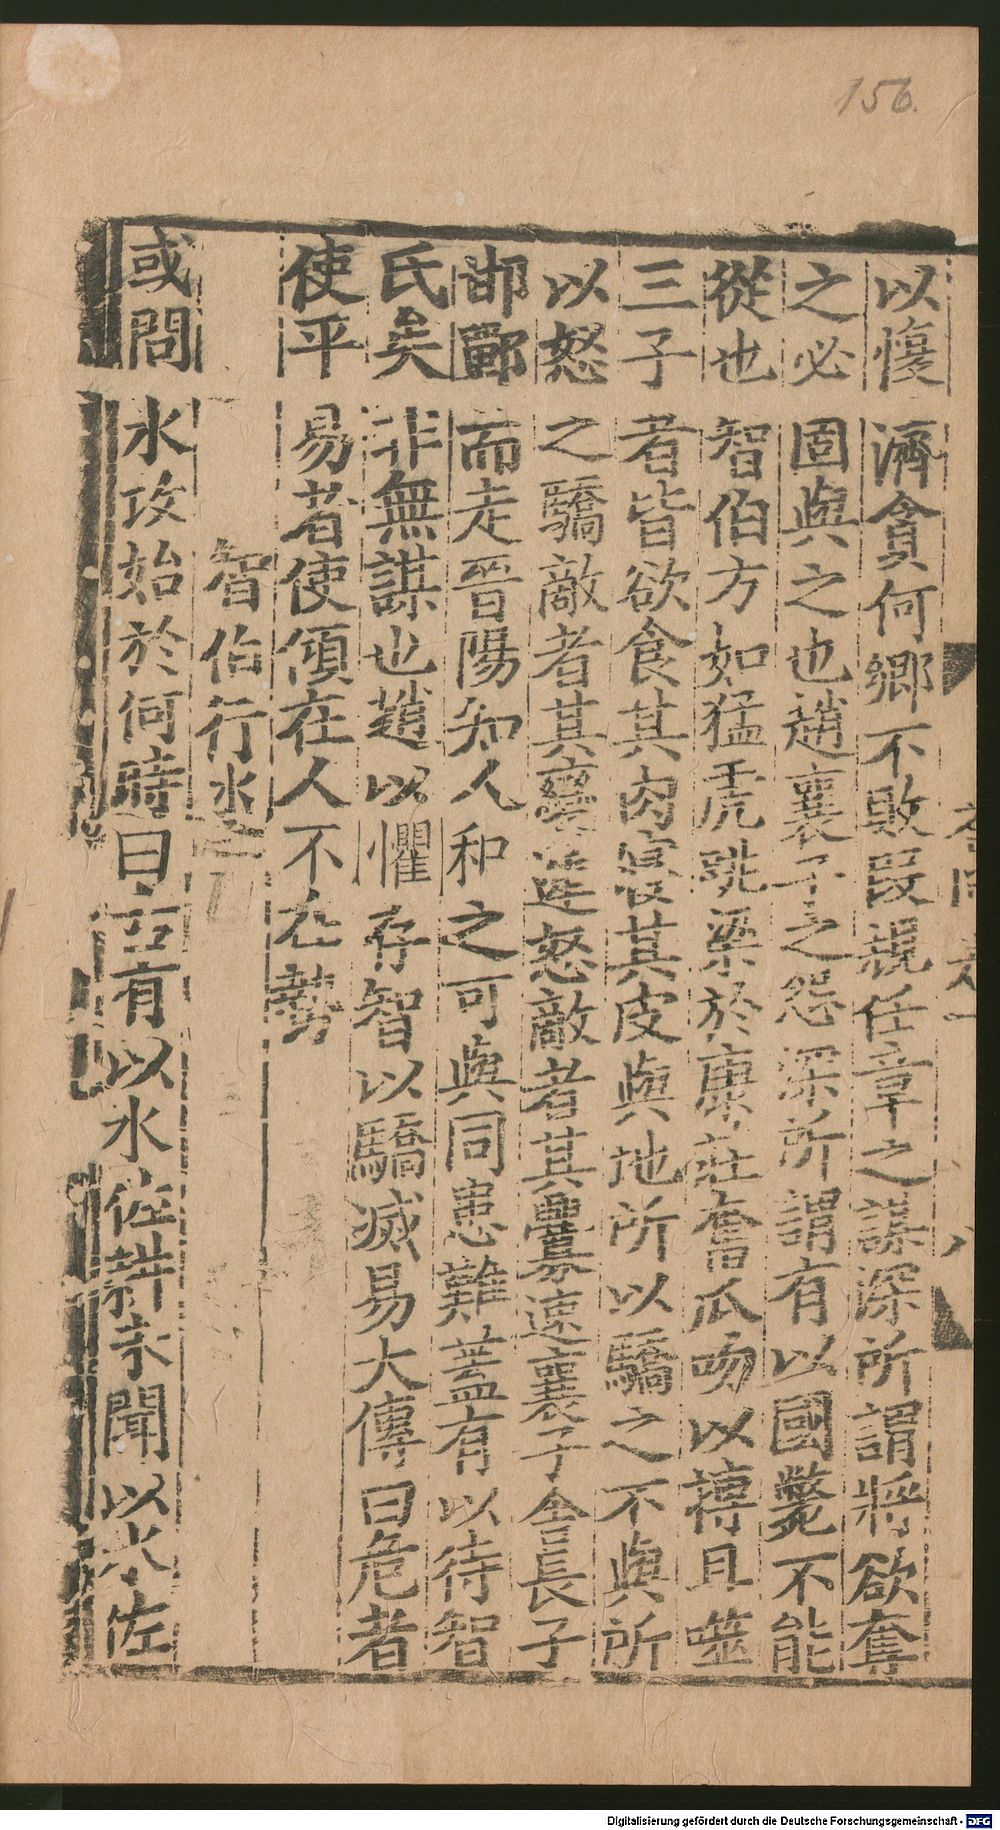 156.
以愎濟貪何鄉不敗段規任章之謀深所謂將欲奪
之必固與之也趙襄子之怨深所謂有以國斃不能
從也智伯方如猛虎跳梁於康莊奮爪吻以搏且噬
三子者皆欲食其肉寢其皮與地所以驕之不與所
以怒之驕敵者其釁遲怒敵者其釁速襄子舍長子
邯鄲而走晉陽知人和之可與同患難蓋有以待智
氏矣非無謀也趙以懼存智以驕滅易大傳曰危者
使平易者使傾在人不在勢
智伯行水
或問水攻始於何時曰古有以水佐耕未聞以水佐
Digitalisierung gefördert durch die Deutsche Forschungsgemeinschaft - DFG